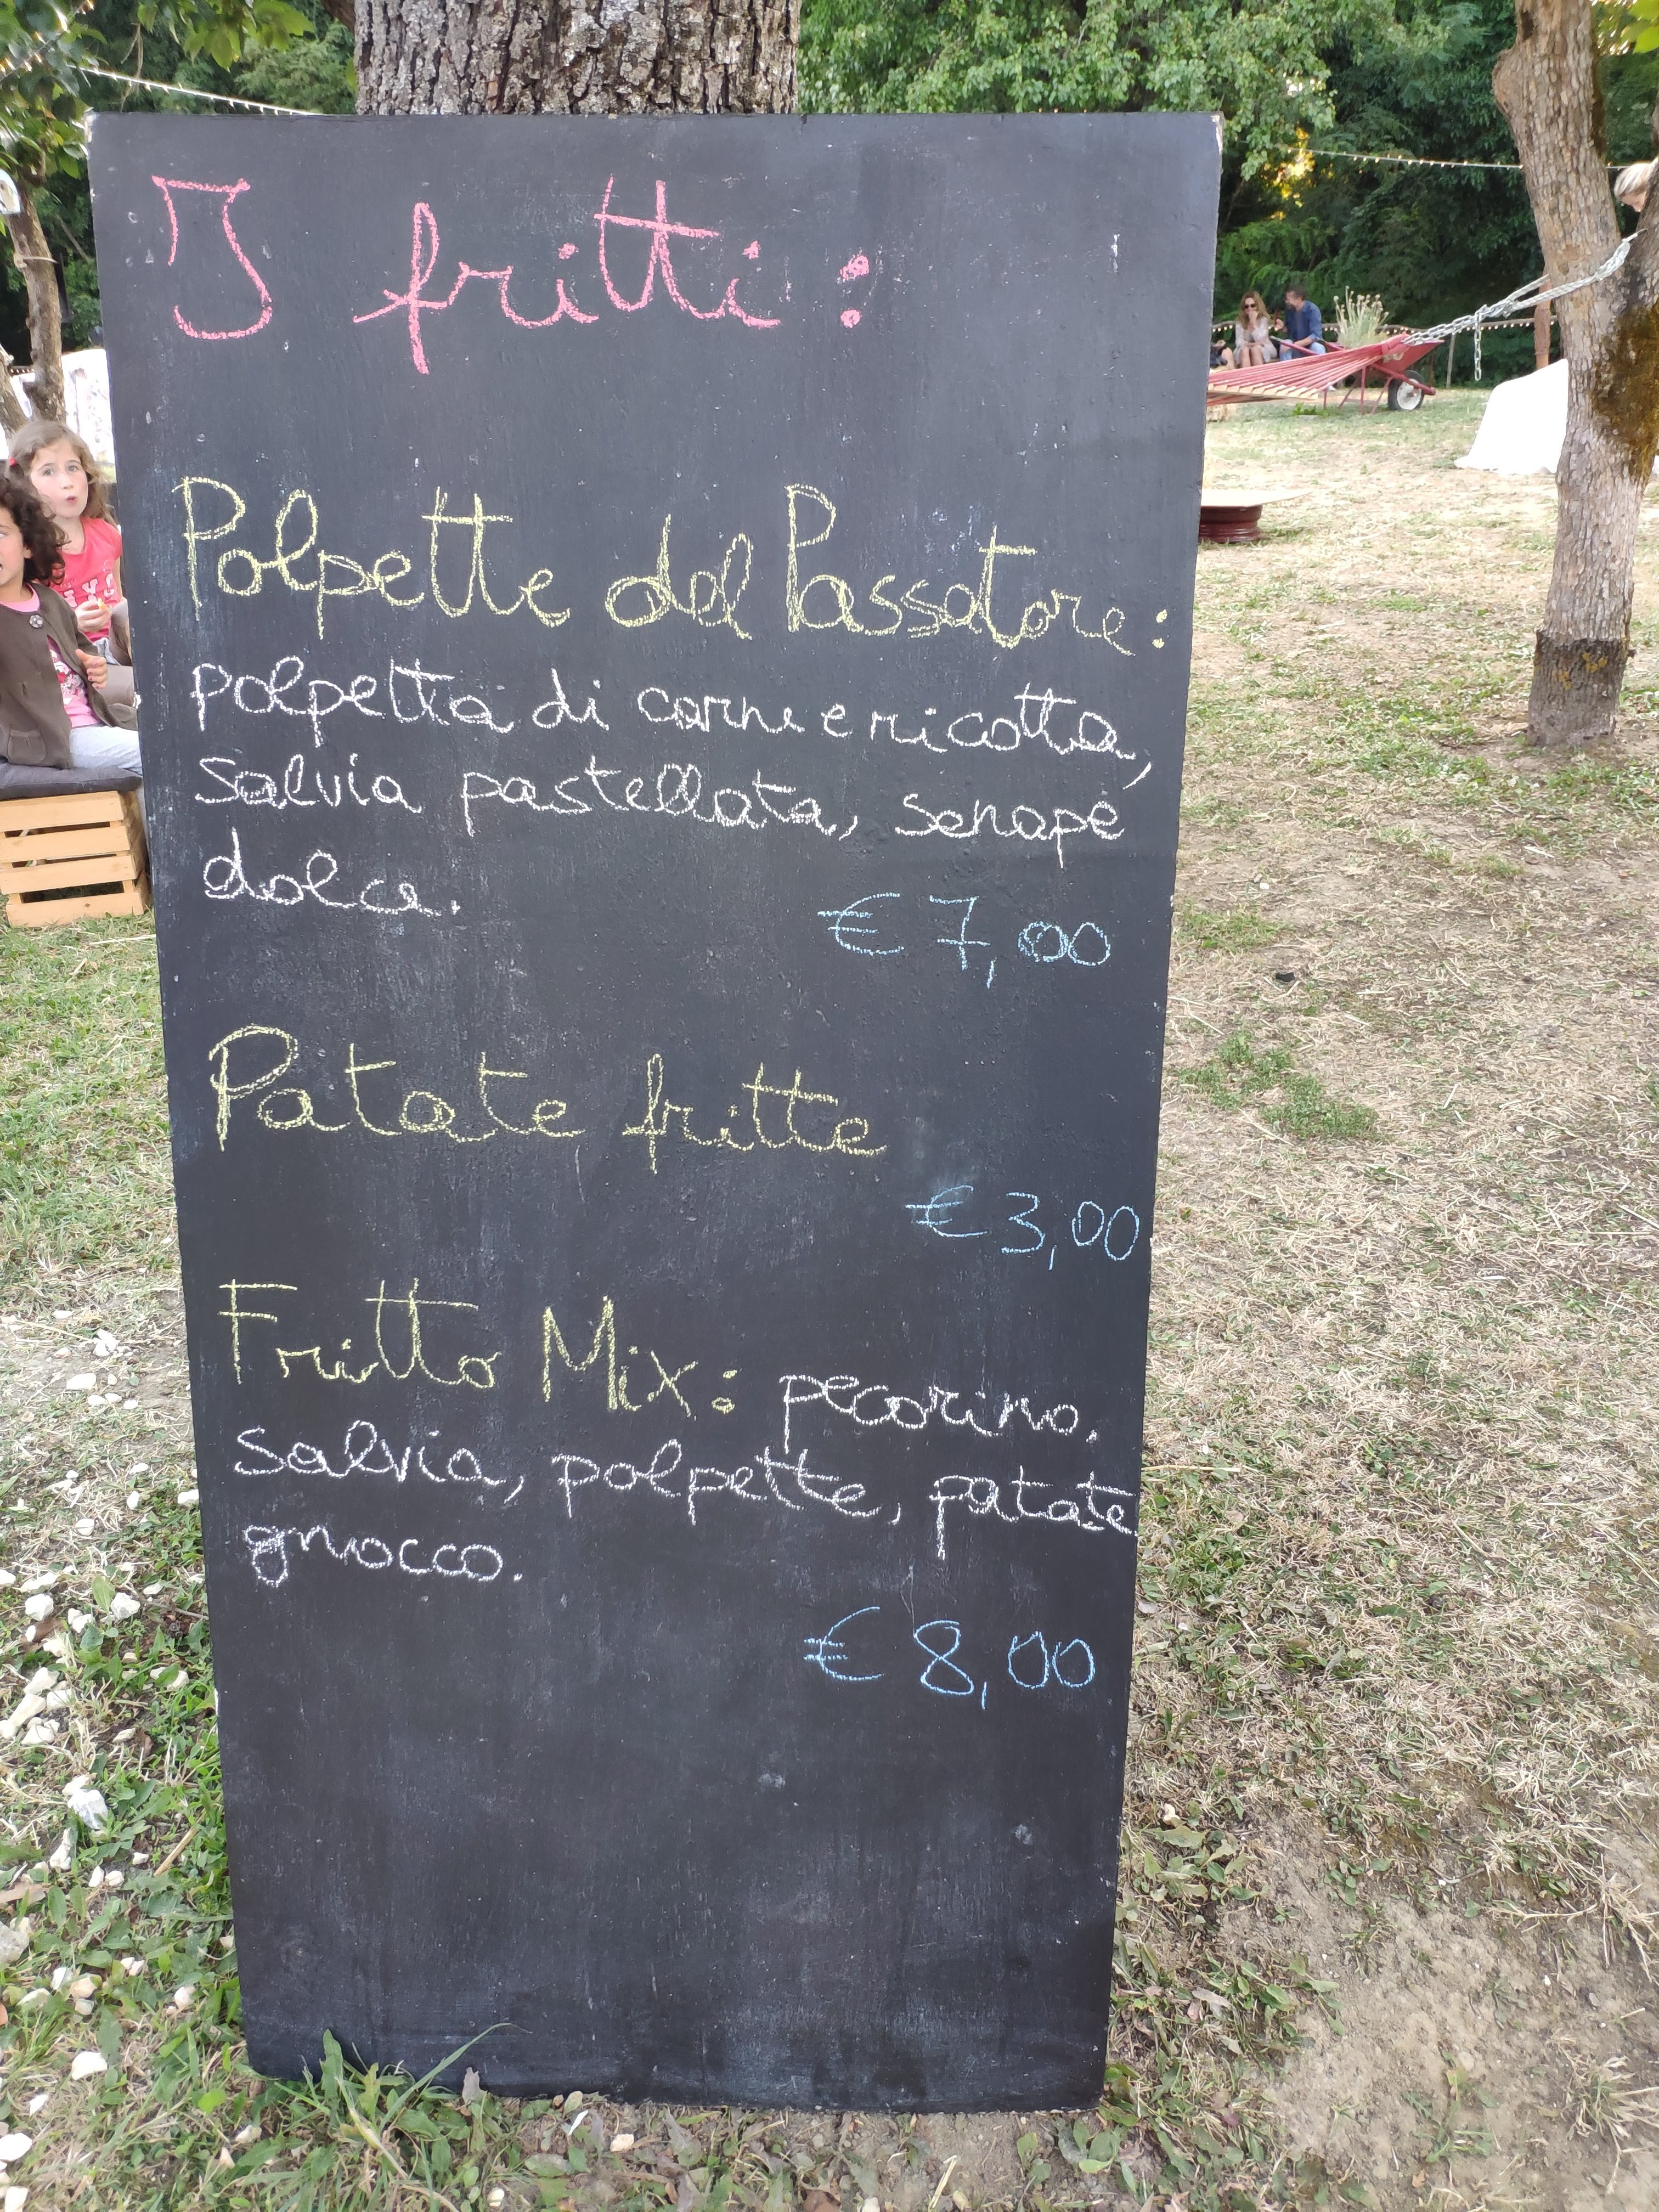 I fritti:
Polpette del Passatore:
polpetta di carne e ricotta,
salvia pastellata, senape
dolce.
€ 7,00
Patate fritte
€ 3,00
Fritto Mix: pecorino,
salvia, polpette, patate
gnocco.
€ 8,00